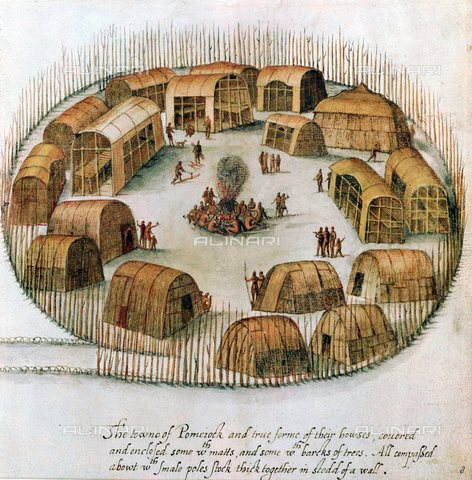 ALINARI
ALINARI
ALINARI
ALINARI
The towne of Pomeiock and true forme of their howses, couered
and enclosed some wth matts, and some wth barcks of trees. All compassed
abowt wth smale poles stock thick together in stedd of a wall.